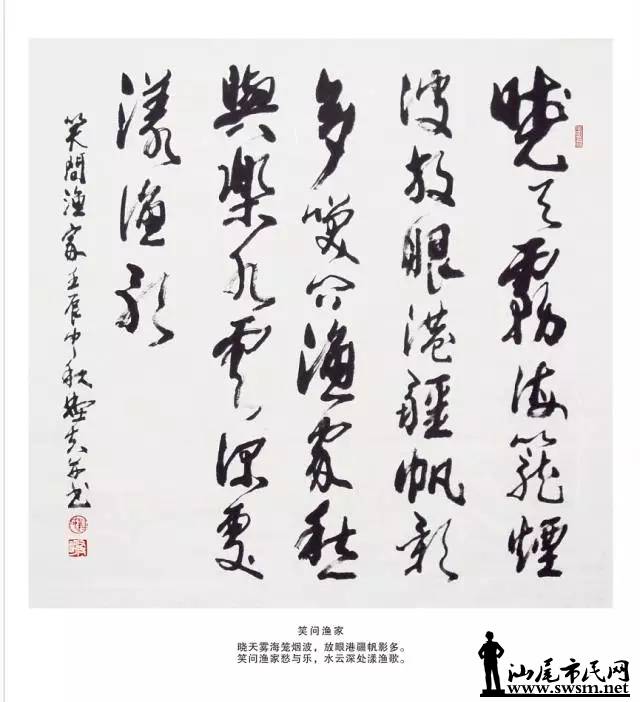 曉天霧海籠煙
波放眼港疆帆影
多笑问漁家愁
與樂水雲深處
漾漁歌
笑問漁家壬辰中秋书
笑问渔家
晓天雾海笼烟波，放眼港疆帆影多。
笑问渔家愁与乐，水云深处漾渔歌。
汕尾市民网
www.swsm.net